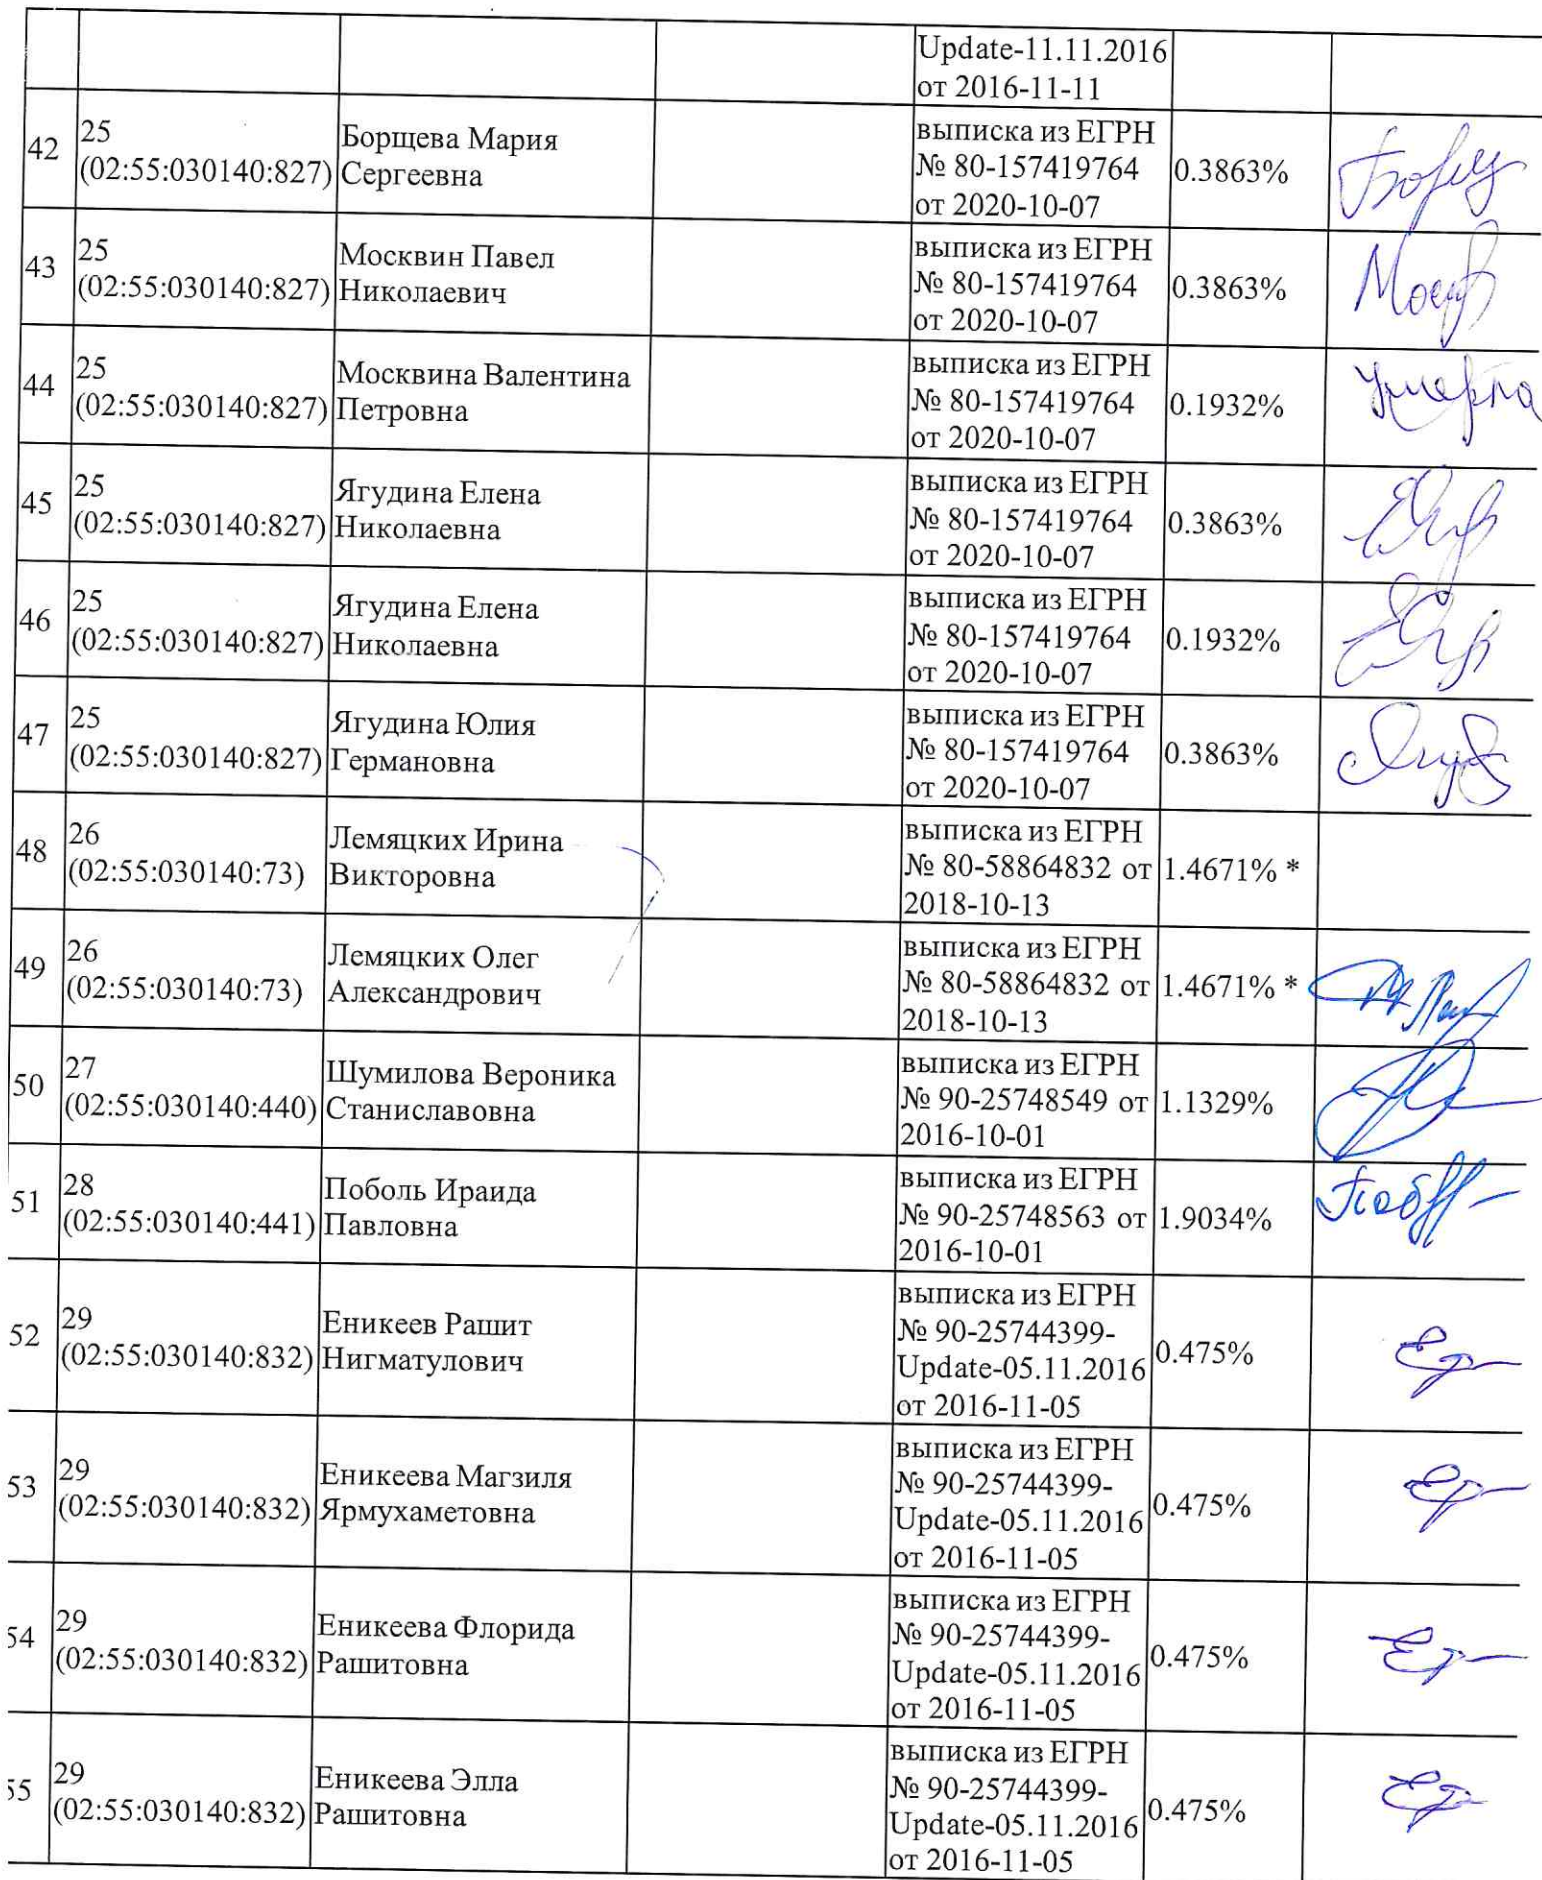 Update-11.11.2016
от 2016-11-11
42
25
(02:55:030140:827)
Борщева Мария
Сергеевна
выписка из ЕГРН
№ 80-157419764
от 2020-10-07
0.3863%
43
25
(02:55:030140:827)
Москвин Павел
Николаевич
выписка из ЕГРН
№ 80-157419764
от 2020-10-07
0.3863%
44
25
(02:55:030140:827)
Москвина Валентина
Петровна
выписка из ЕГРН
№ 80-157419764
от 2020-10-07
0.1932%
умерла
45
25
(02:55:030140:827)
Ягудина Елена
Николаевна
выписка из ЕГРН
№ 80-157419764
от 2020-10-07
0.3863%
46
25
(02:55:030140:827)
Ягудина Елена
Николаевна
выписка из ЕГРН
№ 80-157419764
от 2020-10-07
0.1932%
47
25
(02:55:030140:827)
Ягудина Юлия
Германовна
выписка из ЕГРН
№ 80-157419764
от 2020-10-07
0.3863%
48
26
(02:55:030140:73)
Лемяцких Ирина
Викторовна
выписка из ЕГРН
№ 80-58864832 от
2018-10-13
1.4671% *
49
26
(02:55:030140:73)
Лемяцких Олег
Александрович
выписка из ЕГРН
№ 80-58864832 от
2018-10-13
1.4671% *
50
27
(02:55:030140:440)
Шумилова Вероника
Станиславовна
выписка из ЕГРН
№ 90-25748549 от
2016-10-01
1.1329%
51
28
(02:55:030140:441)
Поболь Ираида
Павловна
выписка из ЕГРН
№ 90-25748563 от
2016-10-01
1.9034%
52
29
(02:55:030140:832)
Еникеев Рашит
Нигматулович
выписка из ЕГРН
№ 90-25744399-
Update-05.11.2016
от 2016-11-05
0.475%
53
29
(02:55:030140:832)
Еникеева Магзиля
Ярмухаметовна
выписка из ЕГРН
№ 90-25744399-
Update-05.11.2016
от 2016-11-05
0.475%
54
29
(02:55:030140:832)
Еникеева Флорида
Рашитовна
выписка из ЕГРН
№ 90-25744399-
Update-05.11.2016
от 2016-11-05
0.475%
55
29
(02:55:030140:832)
Еникеева Элла
Рашитовна
выписка из ЕГРН
№ 90-25744399-
Update-05.11.2016
от 2016-11-05
0.475%